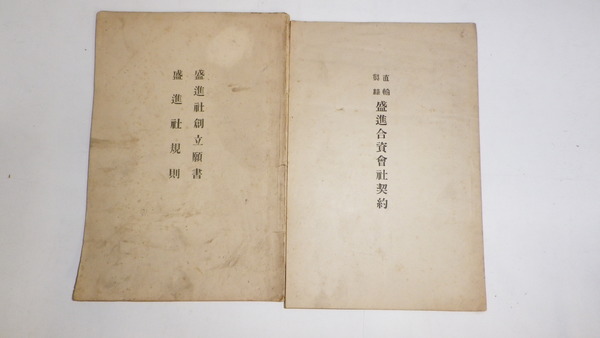 盛進社創立願書
盛進社規則
直輸製絲 盛進合資會社契約